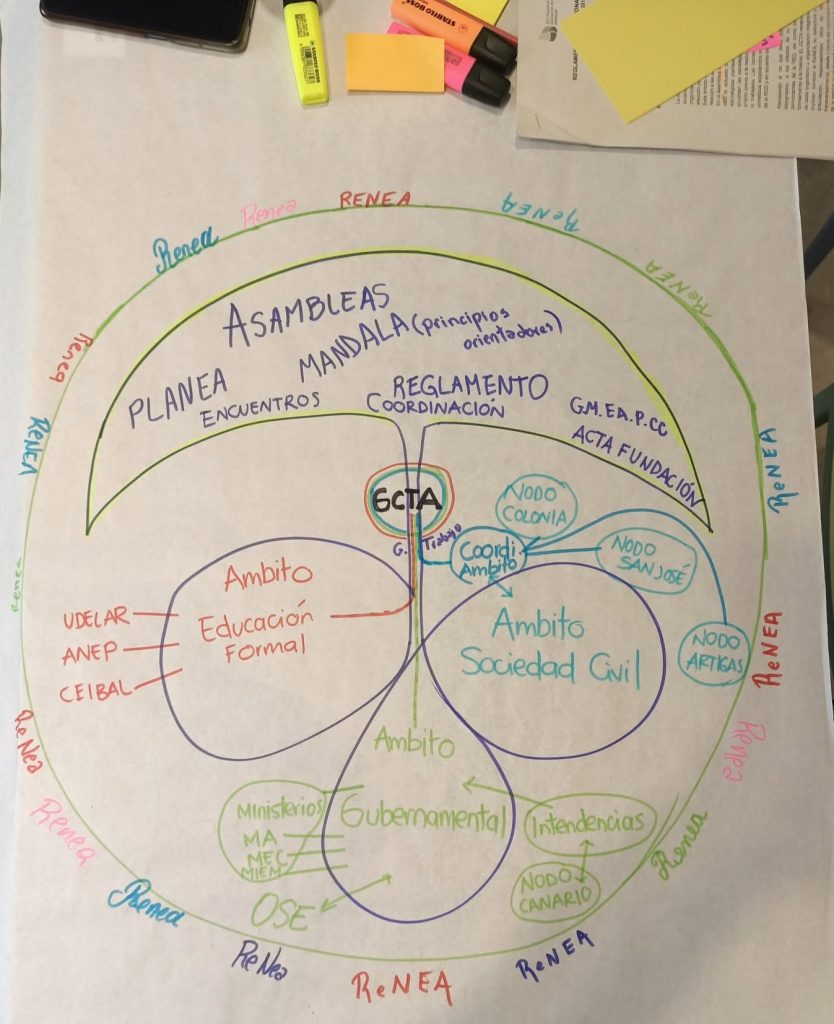 STABILO BOSS
RENEA
Renea
Renea
ReNEA
ReNEA
Renea
RENEA
ReNEA
ASAMBLEAS
MANDALA (principios
orientadores)
PLANEA
ENCUENTROS
REGLAMENTO
COORDINACIÓN
G.M.EA.P.CC
ACTA FUNDACIÓN
GCTA
G. Trabajo
NODO
COLONIA
Coordi.
Ambito
NODO
SAN JOSÉ
NODO
ARTIGAS
Ambito
Educación
Formal
UDELAR
ANEP
CEIBAL
Ambito
Sociedad Civil
Ambito
Gubernamental
Ministerios
MA
MEC
MIEM
OSE
Intendencias
NODO
CANARIO
Renea
ReNEA
ReNea
Renea
Renea
Renea
ReNea
ReNEA
ReNEA
Renea